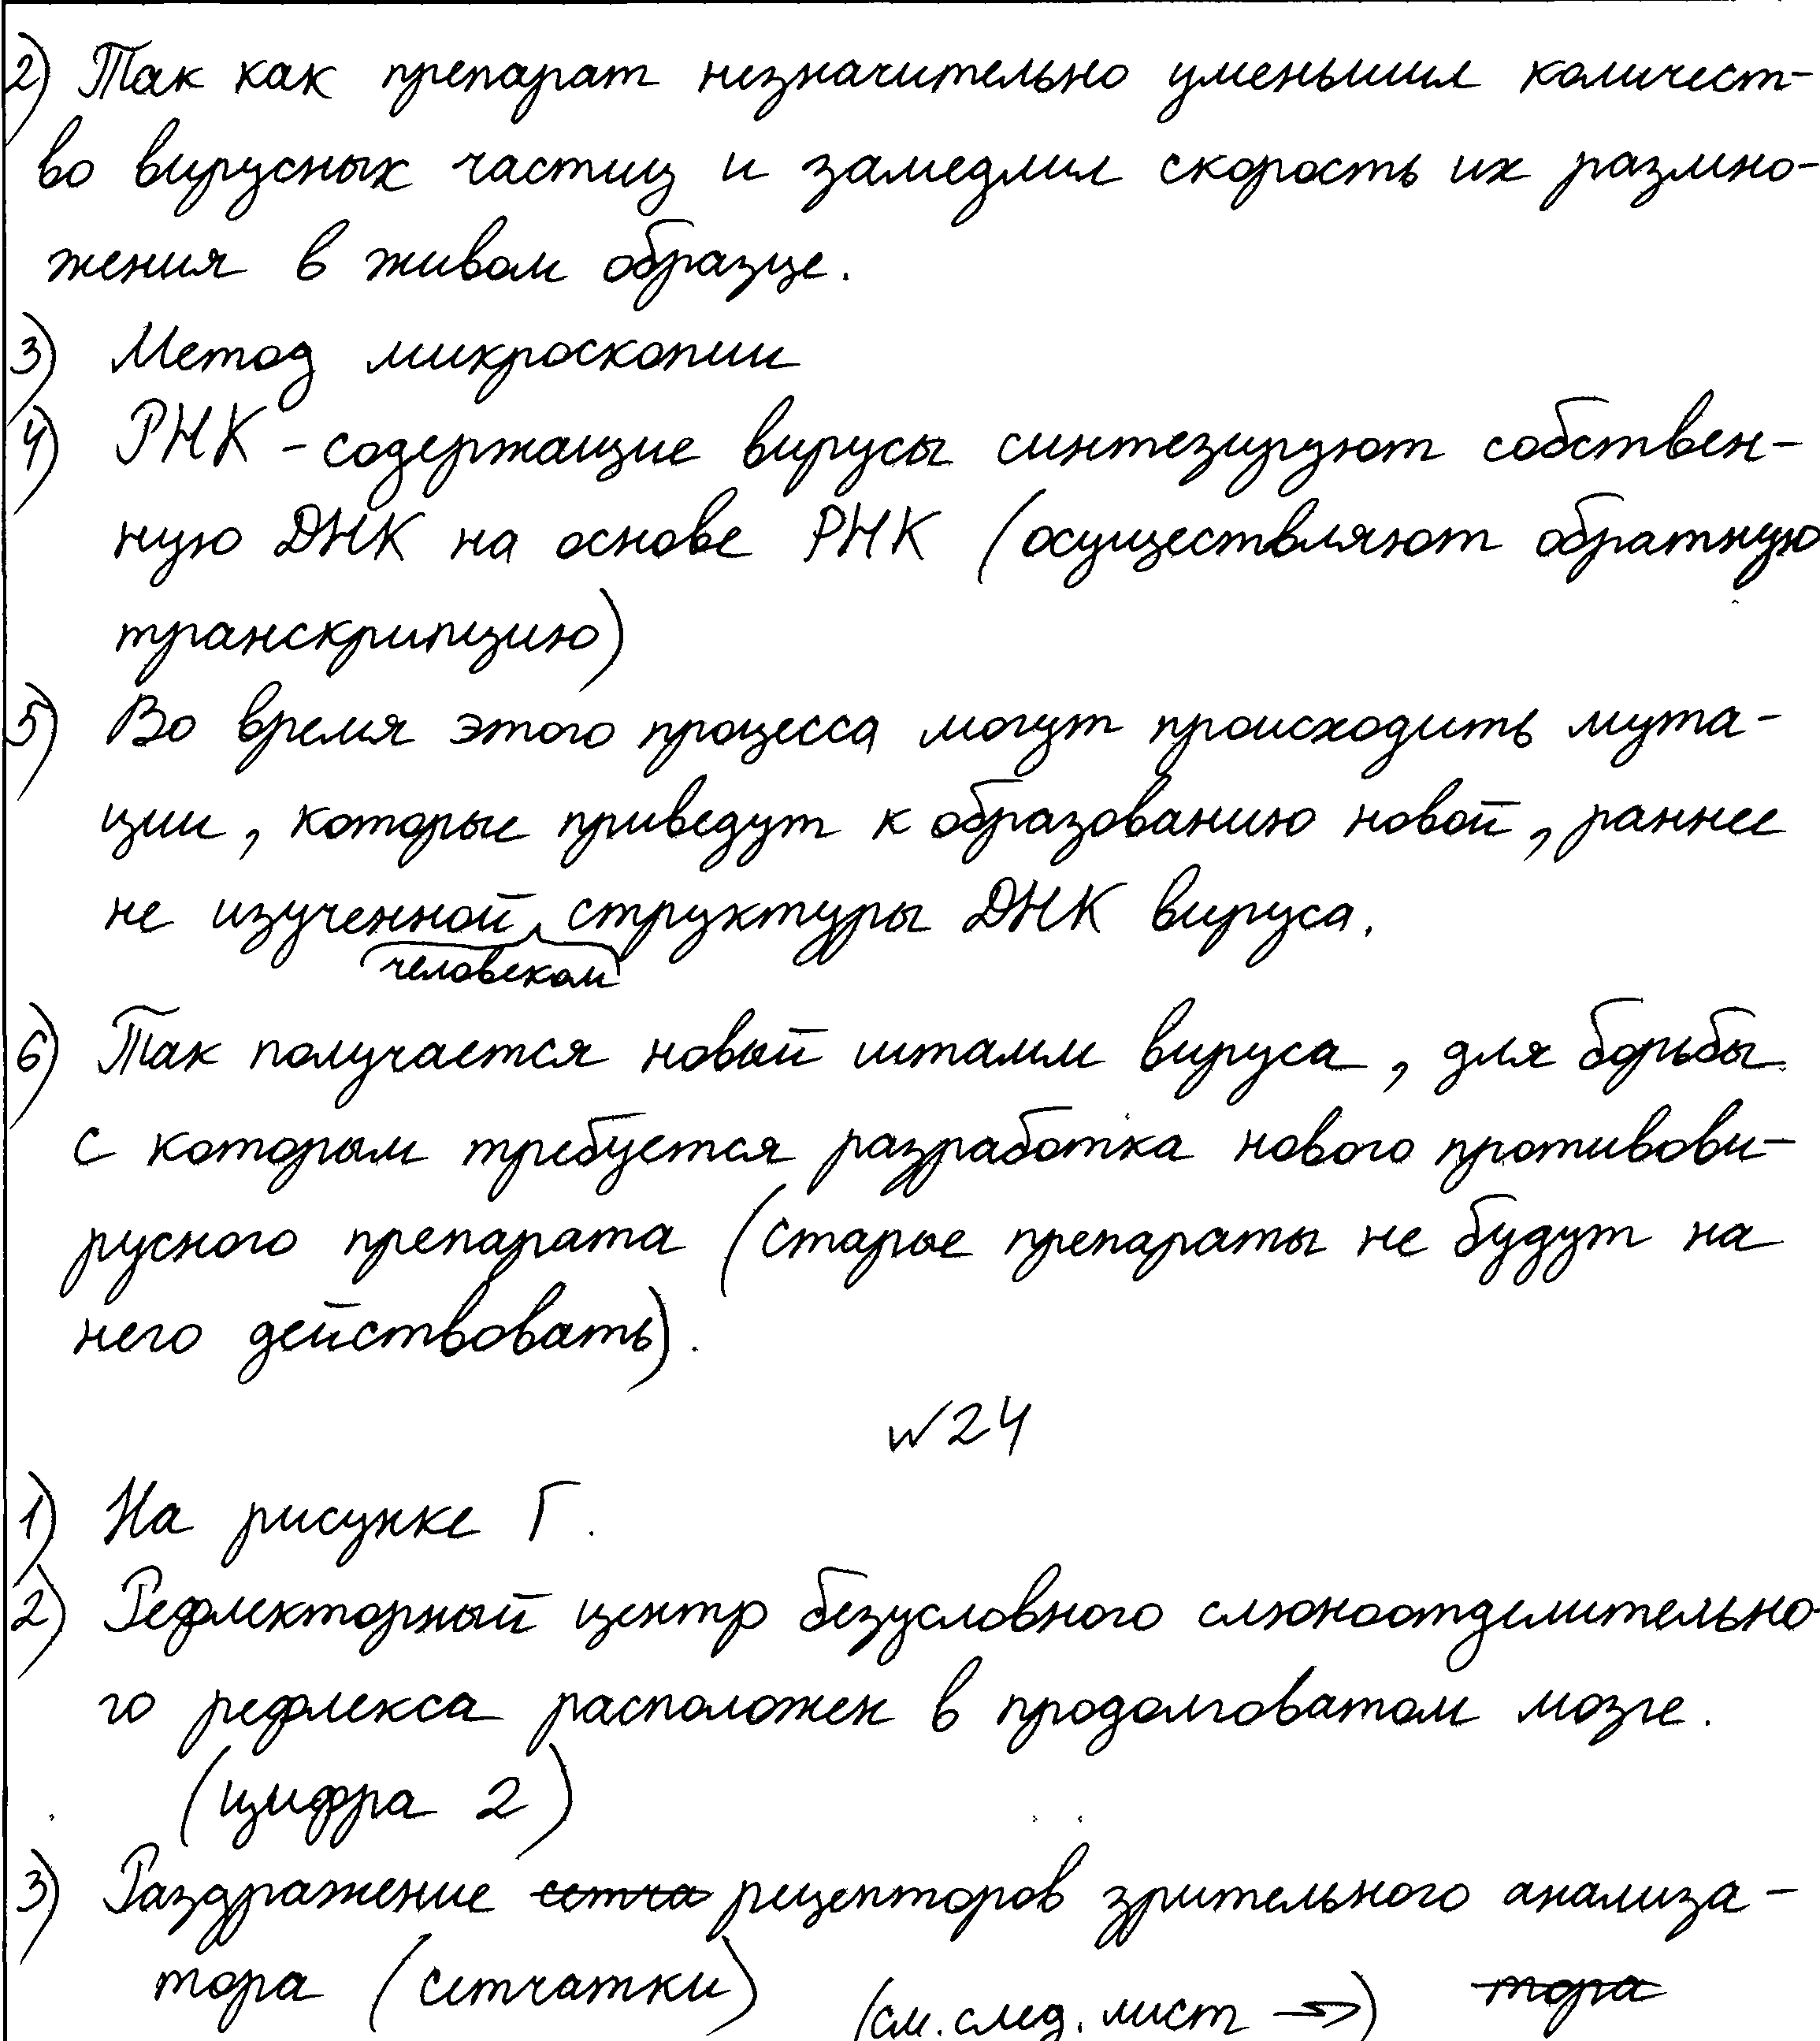 2) Так как препарат незначительно уменьшил количест-
во вирусных частиц и замедлил скорость их размно-
жения в живом образце.
3) Метод микроскопии
4) РНК - содержащие вирусы синтезируют собствен-
ную ДНК на основе РНК (осуществляют обратную
транскрипцию)
5) Во время этого процесса могут происходить мута-
ции, которые приведут к образованию новой, раннее
не изученной структуры ДНК вируса.
человеком
6) Так получается новый штамм вируса, для борьбы
с которым требуется разработка нового противови-
русного препарата (старые препараты не будут на
него действовать).
№24
1) На рисунке Г.
2) Рефлекторный центр безусловного слюноотделительно-
го рефлекса расположен в продолговатом мозге.
(цифра 2)
3) Раздражение сетча рецепторов зрительного анализа-
тора (сетчатки) (см. след. лист →) тора